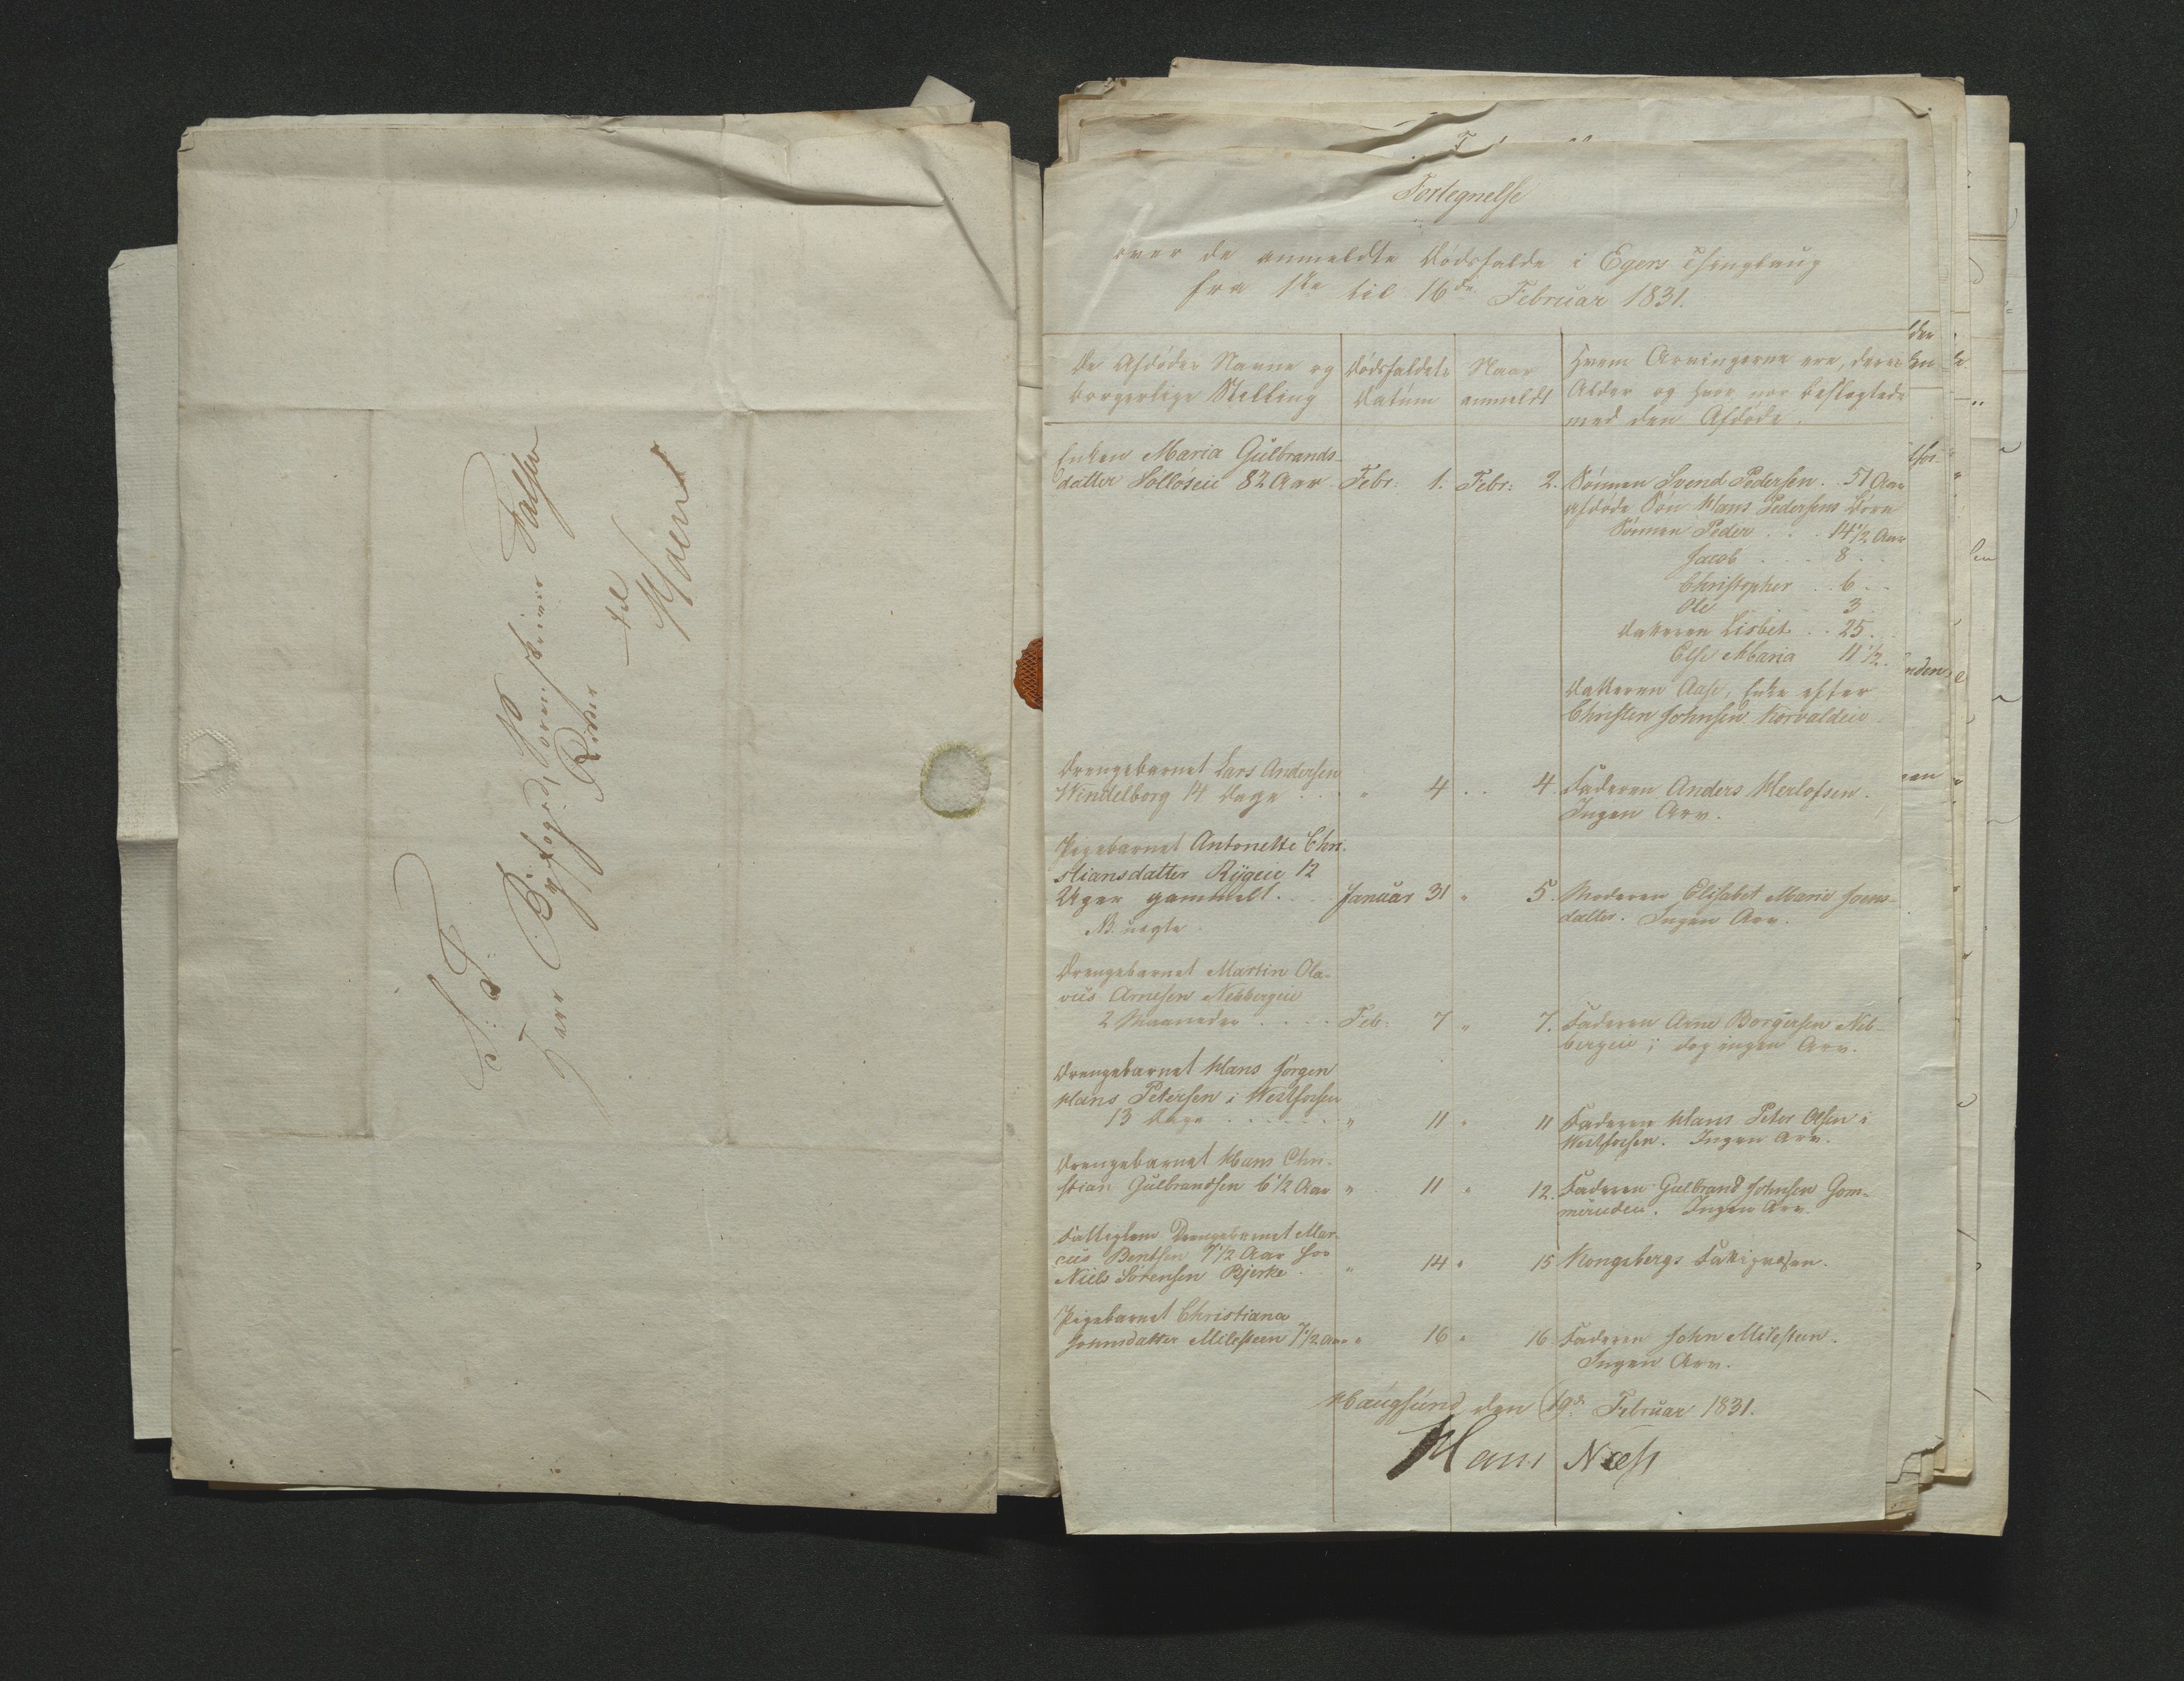 S. T.
Herr Byfoged, Sorenskriver Falsen
Ridder
til
Moen
Fortegnelse
over de anmeldte Dødsfalde i Egers Thinglaug
fra 1ste til 16de Februar 1831.
De Afdødes Navne og
borgerlige Stilling
Dødsfaldets
Datum
Naar
anmeldt
Hvem Arvingerne ere, deres
Alder og hvor nær beslægtede
med den Afdøde.
Enken Maria Gulbrands-
datter Sölloseie 82 Aar Febr: 1. Febr: 2. Sönnen Svend Pedersen . 51 Aar
afdøde Sön Hans Pedersens Börn
Sönnen Peder . . . 14 1/2 Aar
Jacob . . . 8 . .
Christopher . . 6 . .
Ole . . 3
Datteren Lisbet . . 25 . .
Else Maria 11 1/2 .
Datteren Aase, Enke efter
Christen Johnsen Korvaldeie
Drengebarnet Lars Andersen
Windelborg 14 Dage . . . " 4 . . 4. Faderen Anders Herlofsen.
Ingen Arv.
Pigebarnet Antonette Chri-
stiansdatter Rygeie 12
Uger gammelt. . . Januar 31 " 5 Moderen Elisabet Marie Joens-
datter. Ingen Arv.
NB. uægte
Drengebarnet Martin Ola-
vus Arnesen Nebbergeie
2 Maaneder . . . . Feb: 7 " 7. Faderen Arne Borgersen Neb-
bergeie; dog ingen Arv.
Drengebarnet Hans Jörgen
Hans Petersen i Westfossen
13 Dage . . . . . . " 11 " 11 Faderen Hans Peter Olsen i
Westfossen. Ingen Arv.
Drengebarnet Hans Chri-
stian Gulbrandsen 6 1/2 Aar " 11 " 12. Faderen Gulbrand Johnsen Gom-
merudeie. Ingen Arv.
Fattiglem Drengebarnet Mar-
cus Bentsen 7 1/2 Aar hos
Niels Sörensen Bjerke . " 14 " 15 Kongsbergs Fattigvæsen.
Pigebarnet Christiana
Johnsdatter Milesteen 7 1/2 Aar " 16 " 16 Faderen John Milesteen.
Ingen Arv.
Haugsund den 19de Februar 1831.
Hans Næss